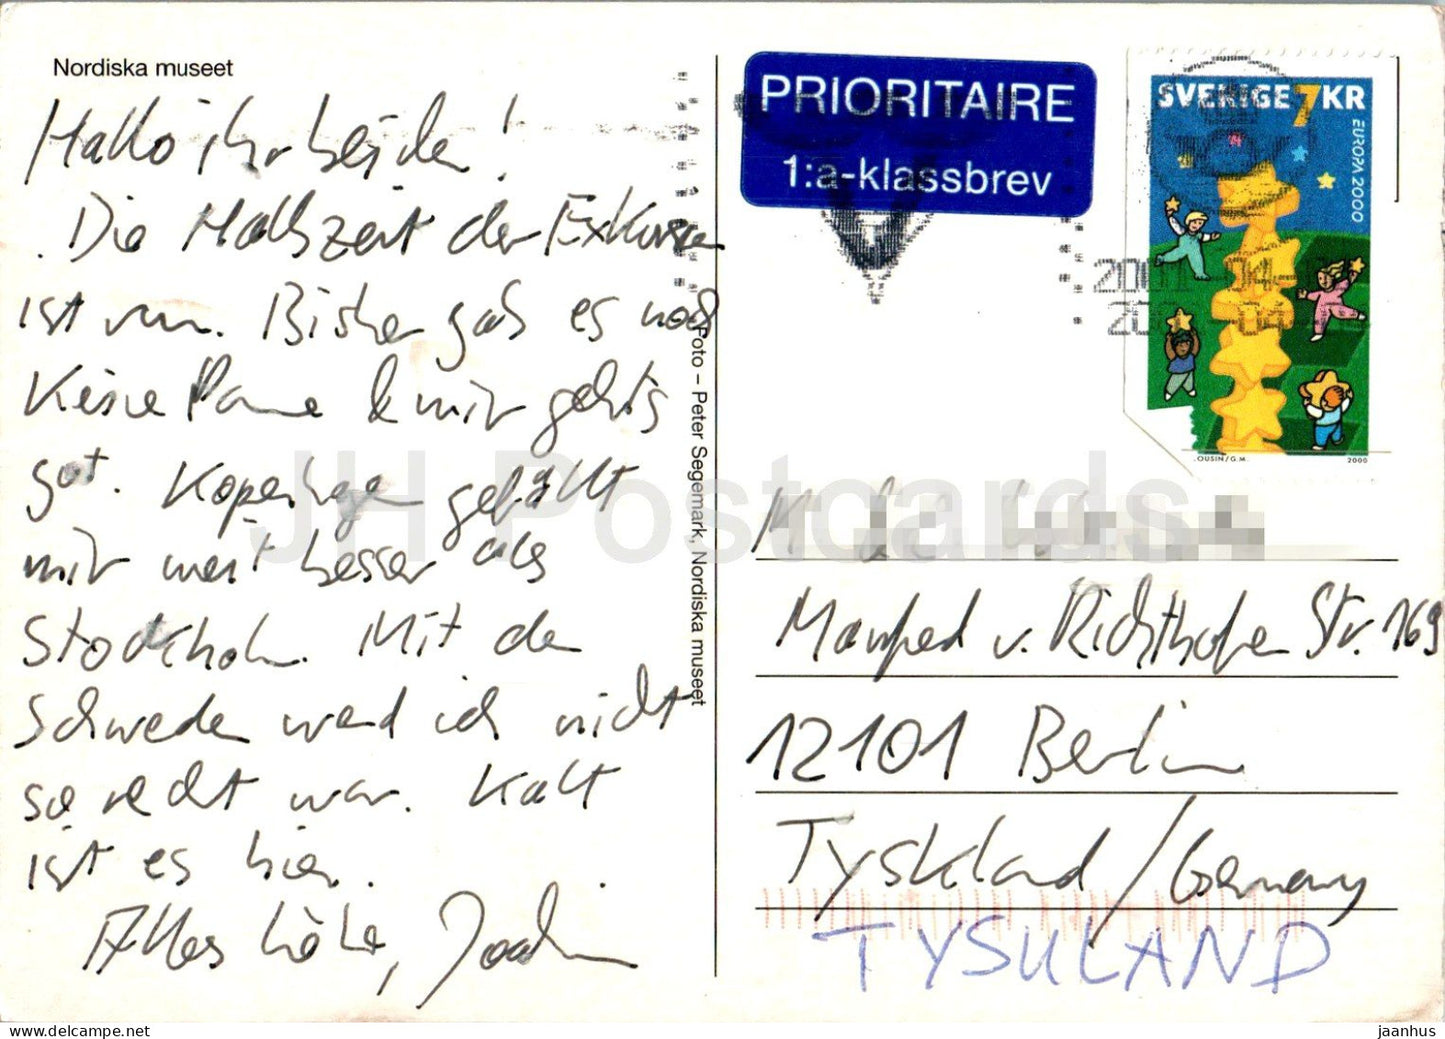 Nordiska museet
Hallo ihr beiden!
Die Halbzeit der Exkursion
ist rum. Bisher gab es noch
keine Panne & mir geht's
gut. Kopenhagen gefällt
mir weit besser als
Stockholm. Mit den
Schweden werd ich nicht
so recht war. Kalt
ist es hier.
Alles Liebe, Joachim
Foto – Peter Segemark, Nordiska museet
PRIORITAIRE
1:a-klassbrev
SVERIGE 7KR
EUROPA 2000
OUSIN/G.M. 2000
2001 04-
Manfred v. Richthofen Str. 169
12101 Berlin
Tyskland/Germany
TYSKLAND
JH Postcards
jaanhus